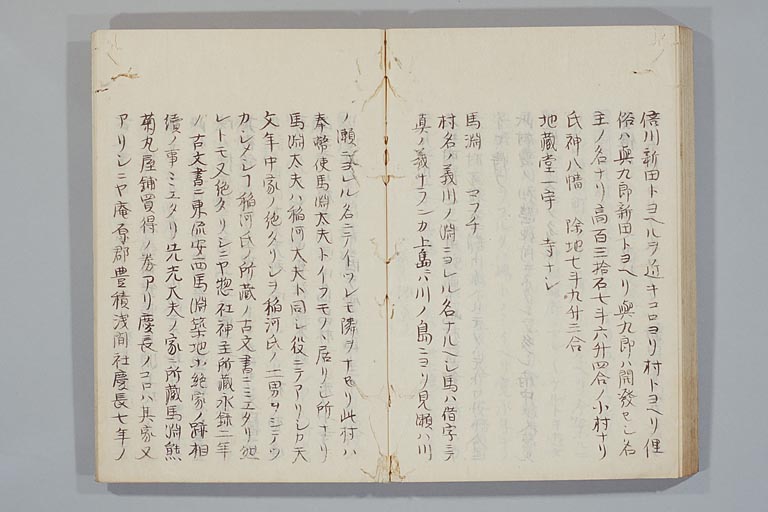 新田トヨヘルヲ近キコロヨリ村トヨヘリ俚
俗ハ與九郎新田トヨヘリ與九郎ハ開發セシ名
主ノ名ナリ高百三拾石七斗六升四合ノ小村ナリ
氏神八幡 除地七斗九升三合
地蔵堂一宇 寺ナシ
馬淵 マフチ
村名ハ義川ノ淵ニヨレル名ナルヘシ馬ハ借字ニテ
真ノ義ナランカ上島ハ川ノ島ニヨリ見瀬ハ川
ノ瀬ニヨレル名ニテイツレモ隣ヲナセリ此村ハ
奉幣使馬淵太夫トイフモノヽ居リシ所ナリ
馬淵大夫ハ稲河大夫ト同シ役ニテアリシカ天
文年中家ノ絶タリシヲ稲河氏ノ二男ヲシテツ
カシメシ稲河氏ノ所蔵ノ古文書ニミエタリ然
レトモ又絶タリシニヤ惣社神主所蔵永録二年
ノ古文書ニ東流安西馬淵築地小絶家ノ跡相
續ノ事ミエタリ大夫ノ家ニ所蔵馬淵熊
菊丸屋鋪買得ノ券アリ慶長ノコロハ其家又
アリシニヤ庵原郡豊積浅間社慶長七年ノ